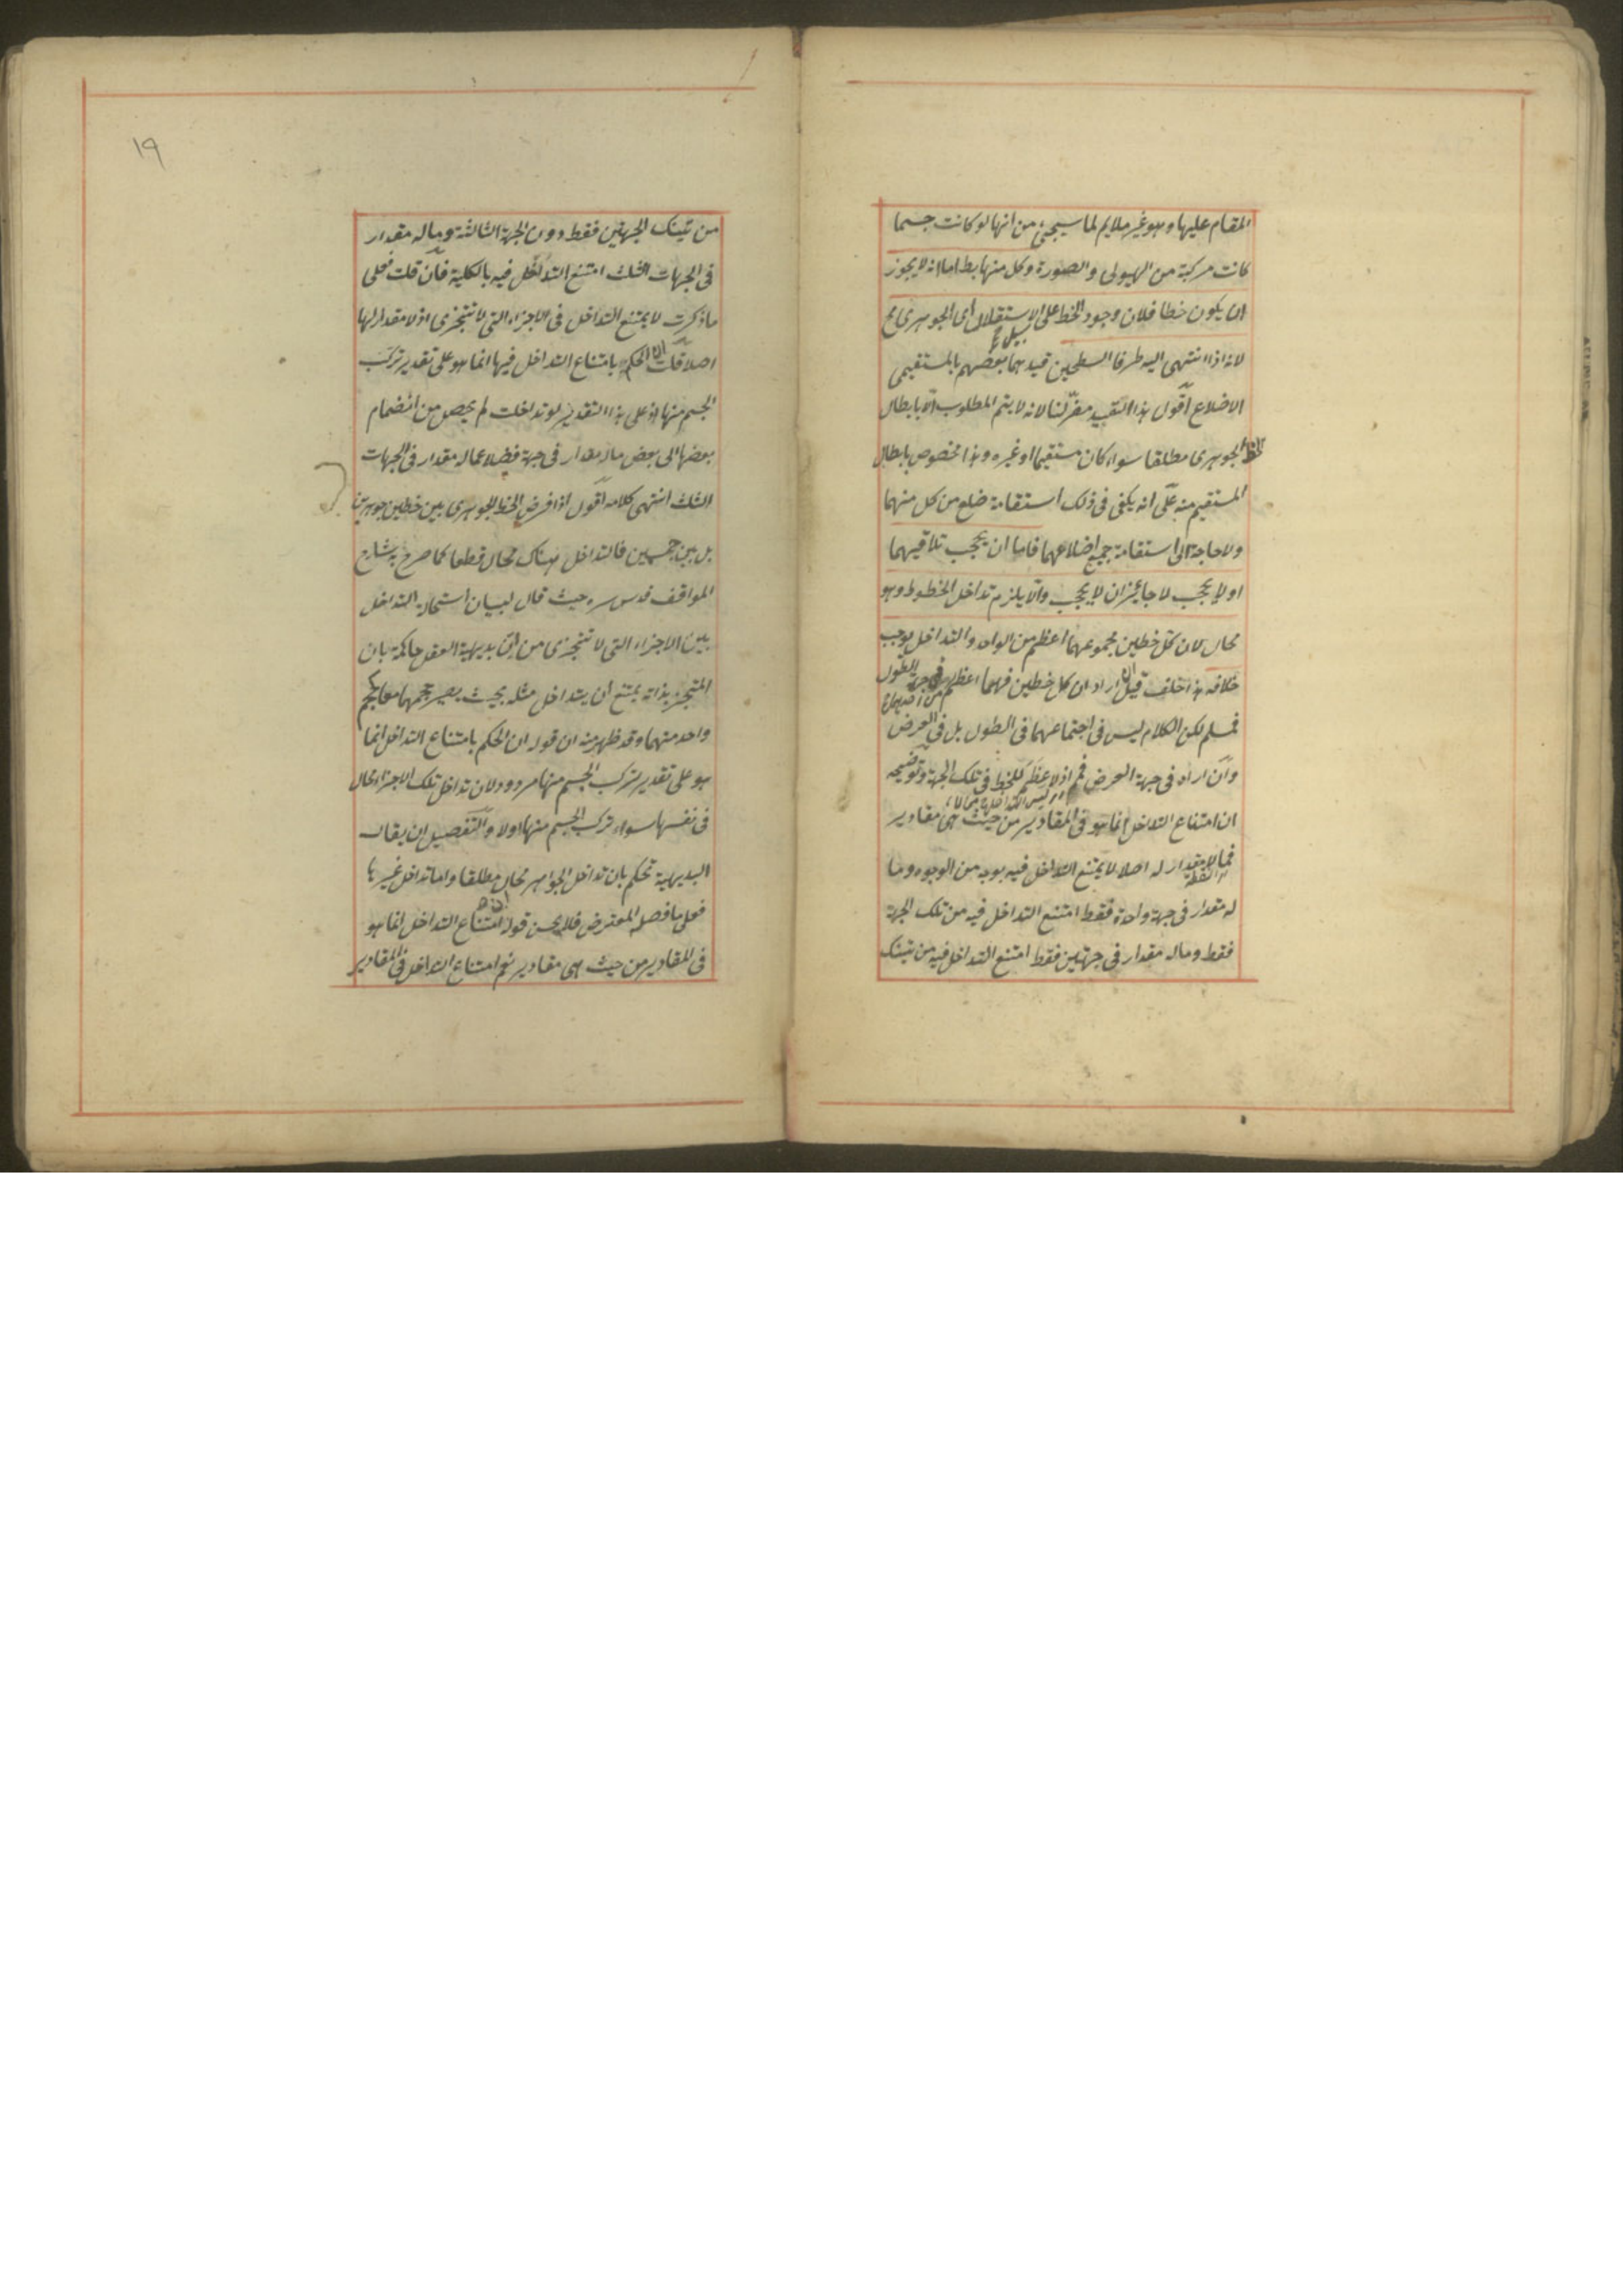 المقام عليها وهو غير ملايم لما سيجئ من انها لو كانت جسما
كانت مركبة من الهيولى والصورة وكل منها بط اما انه لا يجوز
ان يكون خطا فلان وجود الخط على سبيل الاستقلال اى الجوهرى مح
لانه اذا انتهى اليه طرفا السطحين قيدهما بعضهم بالمستقيمى
الاضلاع اقول هذا التقييد مضر لنا لانه لا يتم المطلوب الا بابطال
الخط الجوهرى مطلقا سواء كان مستقيما او غيره وهذا مخصوص بابطال
المستقيم منه على انه يكفى فى ذلك استقامة ضلع من كل منهما
ولا حاجة الى استقامة جميع اضلاعهما فاما ان يحجب تلاقيهما
او لا يحجب لا جايز ان لا يحجب والا يلزم تداخل الخطوط وهو
محال لان كل خطين مجموعهما اعظم من الواحد والتداخل يوجب
خلافه هذا خلف قيل ان اراد ان كل خطين فهما اعظم من احدهما فى جهة الطول
فمسلم لكن الكلام ليس فى اجتماعهما فى الطول بل فى العرض
وان اراد فى جهة العرض فمم اذ لا عظم للخط فى تلك الجهة وتوضيحه
ان امتناع التداخل انما هو فى المقادير من حيث هى مقادير
فما لا مقدار له اصلا لا يمتنع التداخل فيه بوجه من الوجوه وما
كالنقطة
له مقدار فى جهة واحدة فقط امتنع التداخل فيه من تلك الجهة
فقط وماله مقدار فى جهتين فقط امتنع التداخل فيه من تينك
١٩
من تينك الجهتين فقط دون الجهة الثالثة وماله مقدار
فى الجهات الثلث امتنع التداخل فيه بالكلية فان قلت فعلى
ما ذكرت لا يمتنع التداخل فى الاجزاء التى لا تتجزى اذ لا مقدار لها
اصلا قلت الحكم بامتناع التداخل فيها انما هو على تقدير تركب
الجسم منها اذ على هذا التقدير لو تداخلت لم يحصل من انضمام
بعضها الى بعض ماله مقدار فى جهة فضلا عماله مقدار فى الجهات
الثلث انتهى كلامه اقول اذا فرض الخط الجوهرى بين خطين جوهريين
بل بين جسمين فالتداخل هناك محال قطعا كما صرح به شارح
المواقف قدس سره حيث قال لبيان استحالة التداخل
بين الاجزاء التى لا تتجزى من ان بديهية العقل حاكمة بان
المتحيز بذاته يمتنع ان يتداخل مثله بحيث يصير حجمهما معا كحجم
واحد منهما وقد ظهر منه ان قوله ان الحكم بامتناع التداخل انما
هو على تقدير تركب الجسم منها مردود لان تداخل تلك الاجزاء محال
فى نفسها سواء تركب الجسم منها اولا والتفصيل ان يقال
البديهية تحكم بان تداخل الجواهر محال مطلقا واما تداخل غيرها
فعلى ما فصله المعترض فلا يحسن قوله ان امتناع التداخل انما هو
فى المقادير من حيث هى مقادير نعم امتناع التداخل فى المقادير